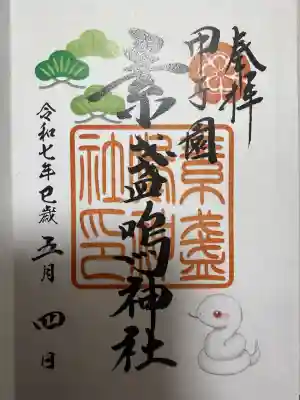 奉拝
甲子園
素盞嗚神社
令和七年巳歳 五月 四日
素盞
嗚神
社印